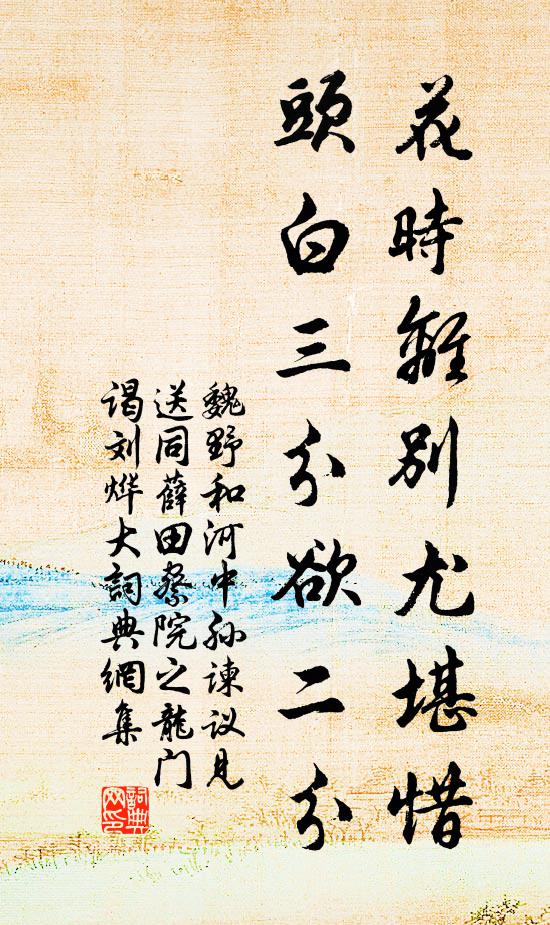 花時離別尤堪惜
頭白三分欲二分
魏野和河中孙諫议見
送同薛田察院之龍门
谒刘烨大詞典網集